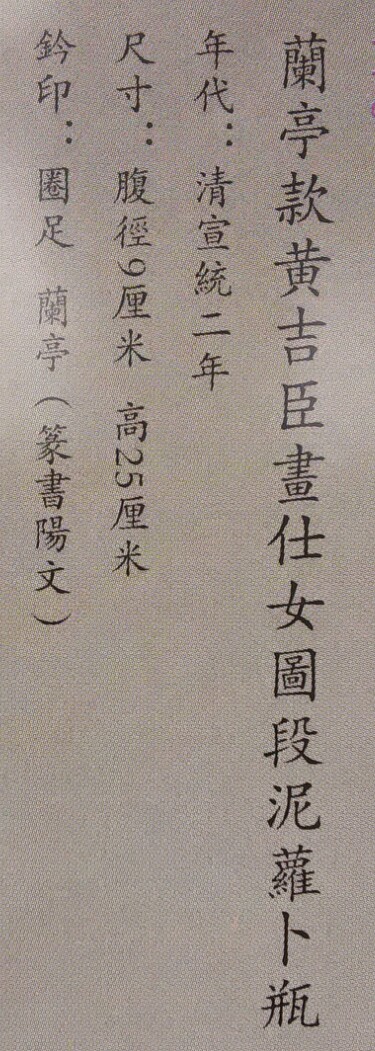 蘭亭款黄吉臣畫仕女圖段泥蘿卜瓶
年代：清宣統二年
尺寸：腹徑9厘米 高25厘米
鈐印：圈足 蘭亭（篆書陽文）